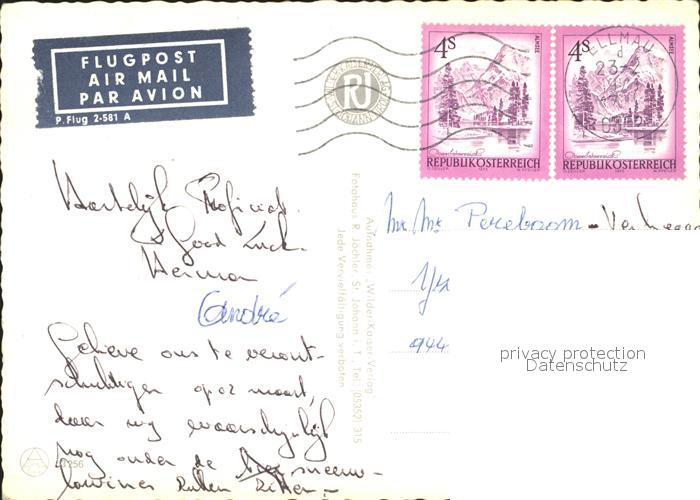 FLUGPOST
AIR MAIL
PAR AVION
P. Flug 2-581 A
4s
ALMSEE
4s
ALMSEE
ELLMAU
REPUBLIK ÖSTERREICH
REPUBLIK ÖSTERREICH
RJ
Hartelijk Proficiat.
& Good Luck.
Herman
André
Gelieve ons te veront-
schuldigen op 02 maart,
daar wij waarschijnlijk
nog onder de sneeuw-
lawines zullen zitten -
Aufnahme: „Wilder-Kaiser-Verlag"
Fotohaus R. Jöchler, St. Johann i. T., Tel. (05352) 315
Jede Vervielfältigung verboten
Mr. Mr. Pereboom - Verhaegen
944
privacy protection
Datenschutz